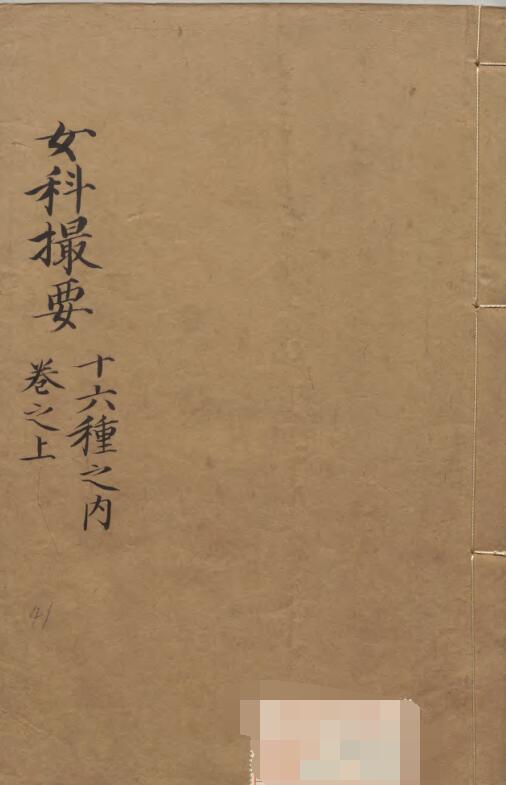 女科撮要
十六種之内
卷之上
41